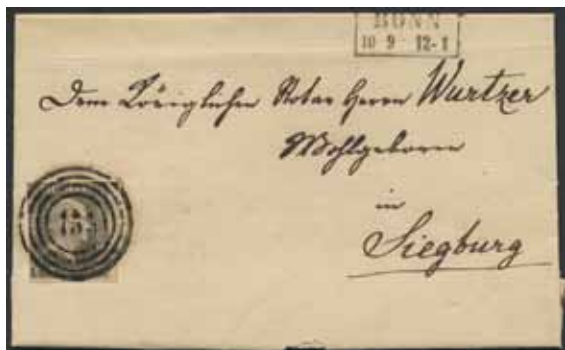 BONN
10 9 12-1
Dem Königlichen Notar Herrn Wurtzer
Wohlgeboren
in
Siegburg